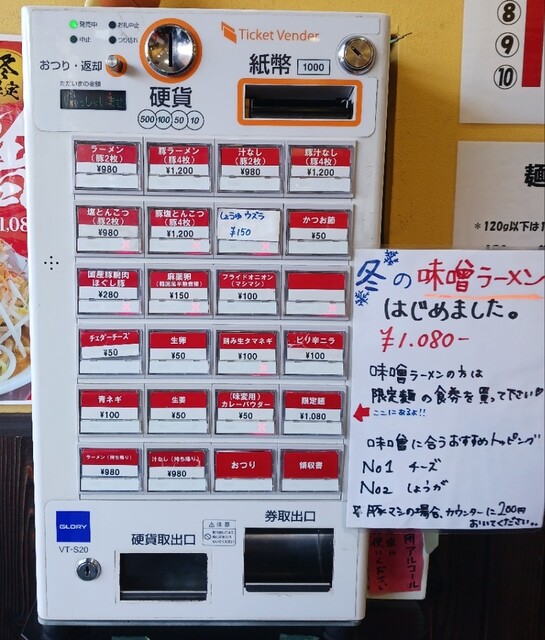 発売中
お札中止
中止
つり切れ
Ticket Vender
おつり・返却
紙幣 1000
ただいまの金額
硬貨
500 100 50 10
⑧
⑨
⑩
冬
ラーメン
(豚2枚)
¥980
豚ラーメン
(豚4枚)
¥1,200
汁なし
(豚2枚)
¥980
豚汁なし
(豚4枚)
¥1,200
塩とんこつ
(豚2枚)
¥980
豚塩とんこつ
(豚4枚)
¥1,200
しょうゆウズラ
¥150
かつお節
¥50
国産豚腕肉
ほぐし豚
¥280
麻薬卵
¥150
フライドオニオン
(マシマシ)
¥100
チェダーチーズ
¥50
生卵
¥50
刻み生タマネギ
¥100
ピリ辛ニラ
¥100
青ネギ
¥100
生姜
¥50
(味変用)
カレーパウダー
¥50
限定麺
¥1,080
ラーメン(持ち帰り)
¥980
汁なし(持ち帰り)
¥980
おつり
領収書
GLORY
VT-S20
硬貨取出口
注意
券取出口
麺
*120g以下は1
冬の味噌ラーメン
はじめました。
¥1.080-
味噌ラーメンの方は
限定麺の食券を買って下さい
ここにあるよ!!
味噌に合うおすすめトッピング
No1 チーズ
No2 しょうが
※豚マシの場合、カウンターに200円
おいてください。
用アルコール
使いください